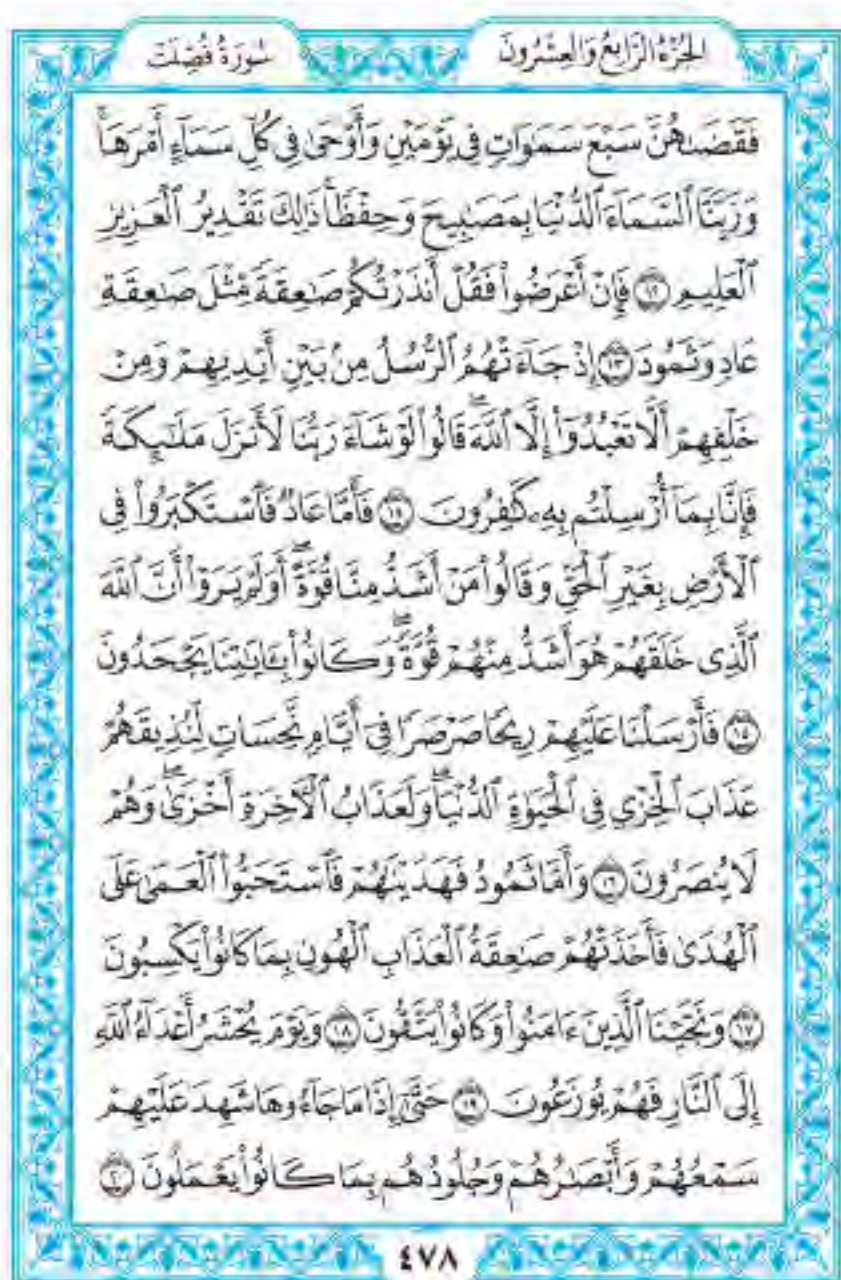 الجزء الرابع والعشرون
سورة فصلت
فَقَضَىٰهُنَّ سَبْعَ سَمَٰوَاتٍ فِى يَوْمَيْنِ وَأَوْحَىٰ فِى كُلِّ سَمَآءٍ أَمْرَهَا ۚ
وَزَيَّنَّا ٱلسَّمَآءَ ٱلدُّنْيَا بِمَصَٰبِيحَ وَحِفْظًا ۚ ذَٰلِكَ تَقْدِيرُ ٱلْعَزِيزِ
ٱلْعَلِيمِ ١٢ فَإِنْ أَعْرَضُوا۟ فَقُلْ أَنذَرْتُكُمْ صَٰعِقَةً مِّثْلَ صَٰعِقَةِ
عَادٍ وَثَمُودَ ١٣ إِذْ جَآءَتْهُمُ ٱلرُّسُلُ مِنۢ بَيْنِ أَيْدِيهِمْ وَمِنْ
خَلْفِهِمْ أَلَّا تَعْبُدُوٓا۟ إِلَّا ٱللَّهَ ۖ قَالُوا۟ لَوْ شَآءَ رَبُّنَا لَأَنزَلَ مَلَٰٓئِكَةً
فَإِنَّا بِمَآ أُرْسِلْتُم بِهِۦ كَٰفِرُونَ ١٤ فَأَمَّا عَادٌ فَٱسْتَكْبَرُوا۟ فِى
ٱلْأَرْضِ بِغَيْرِ ٱلْحَقِّ وَقَالُوا۟ مَنْ أَشَدُّ مِنَّا قُوَّةً ۖ أَوَلَمْ يَرَوْا۟ أَنَّ ٱللَّهَ
ٱلَّذِى خَلَقَهُمْ هُوَ أَشَدُّ مِنْهُمْ قُوَّةً ۖ وَكَانُوا۟ بِـَٔايَٰتِنَا يَجْحَدُونَ
١٥ فَأَرْسَلْنَا عَلَيْهِمْ رِيحًا صَرْصَرًا فِىٓ أَيَّامٍ نَّحِسَاتٍ لِّنُذِيقَهُمْ
عَذَابَ ٱلْخِزْىِ فِى ٱلْحَيَوٰةِ ٱلدُّنْيَا ۖ وَلَعَذَابُ ٱلْـَٔاخِرَةِ أَخْزَىٰ ۖ وَهُمْ
لَا يُنصَرُونَ ١٦ وَأَمَّا ثَمُودُ فَهَدَيْنَٰهُمْ فَٱسْتَحَبُّوا۟ ٱلْعَمَىٰ عَلَى
ٱلْهُدَىٰ فَأَخَذَتْهُمْ صَٰعِقَةُ ٱلْعَذَابِ ٱلْهُونِ بِمَا كَانُوا۟ يَكْسِبُونَ
١٧ وَنَجَّيْنَا ٱلَّذِينَ ءَامَنُوا۟ وَكَانُوا۟ يَتَّقُونَ ١٨ وَيَوْمَ يُحْشَرُ أَعْدَآءُ ٱللَّهِ
إِلَى ٱلنَّارِ فَهُمْ يُوزَعُونَ ١٩ حَتَّىٰٓ إِذَا مَا جَآءُوهَا شَهِدَ عَلَيْهِمْ
سَمْعُهُمْ وَأَبْصَٰرُهُمْ وَجُلُودُهُم بِمَا كَانُوا۟ يَعْمَلُونَ ٢٠
٤٧٨